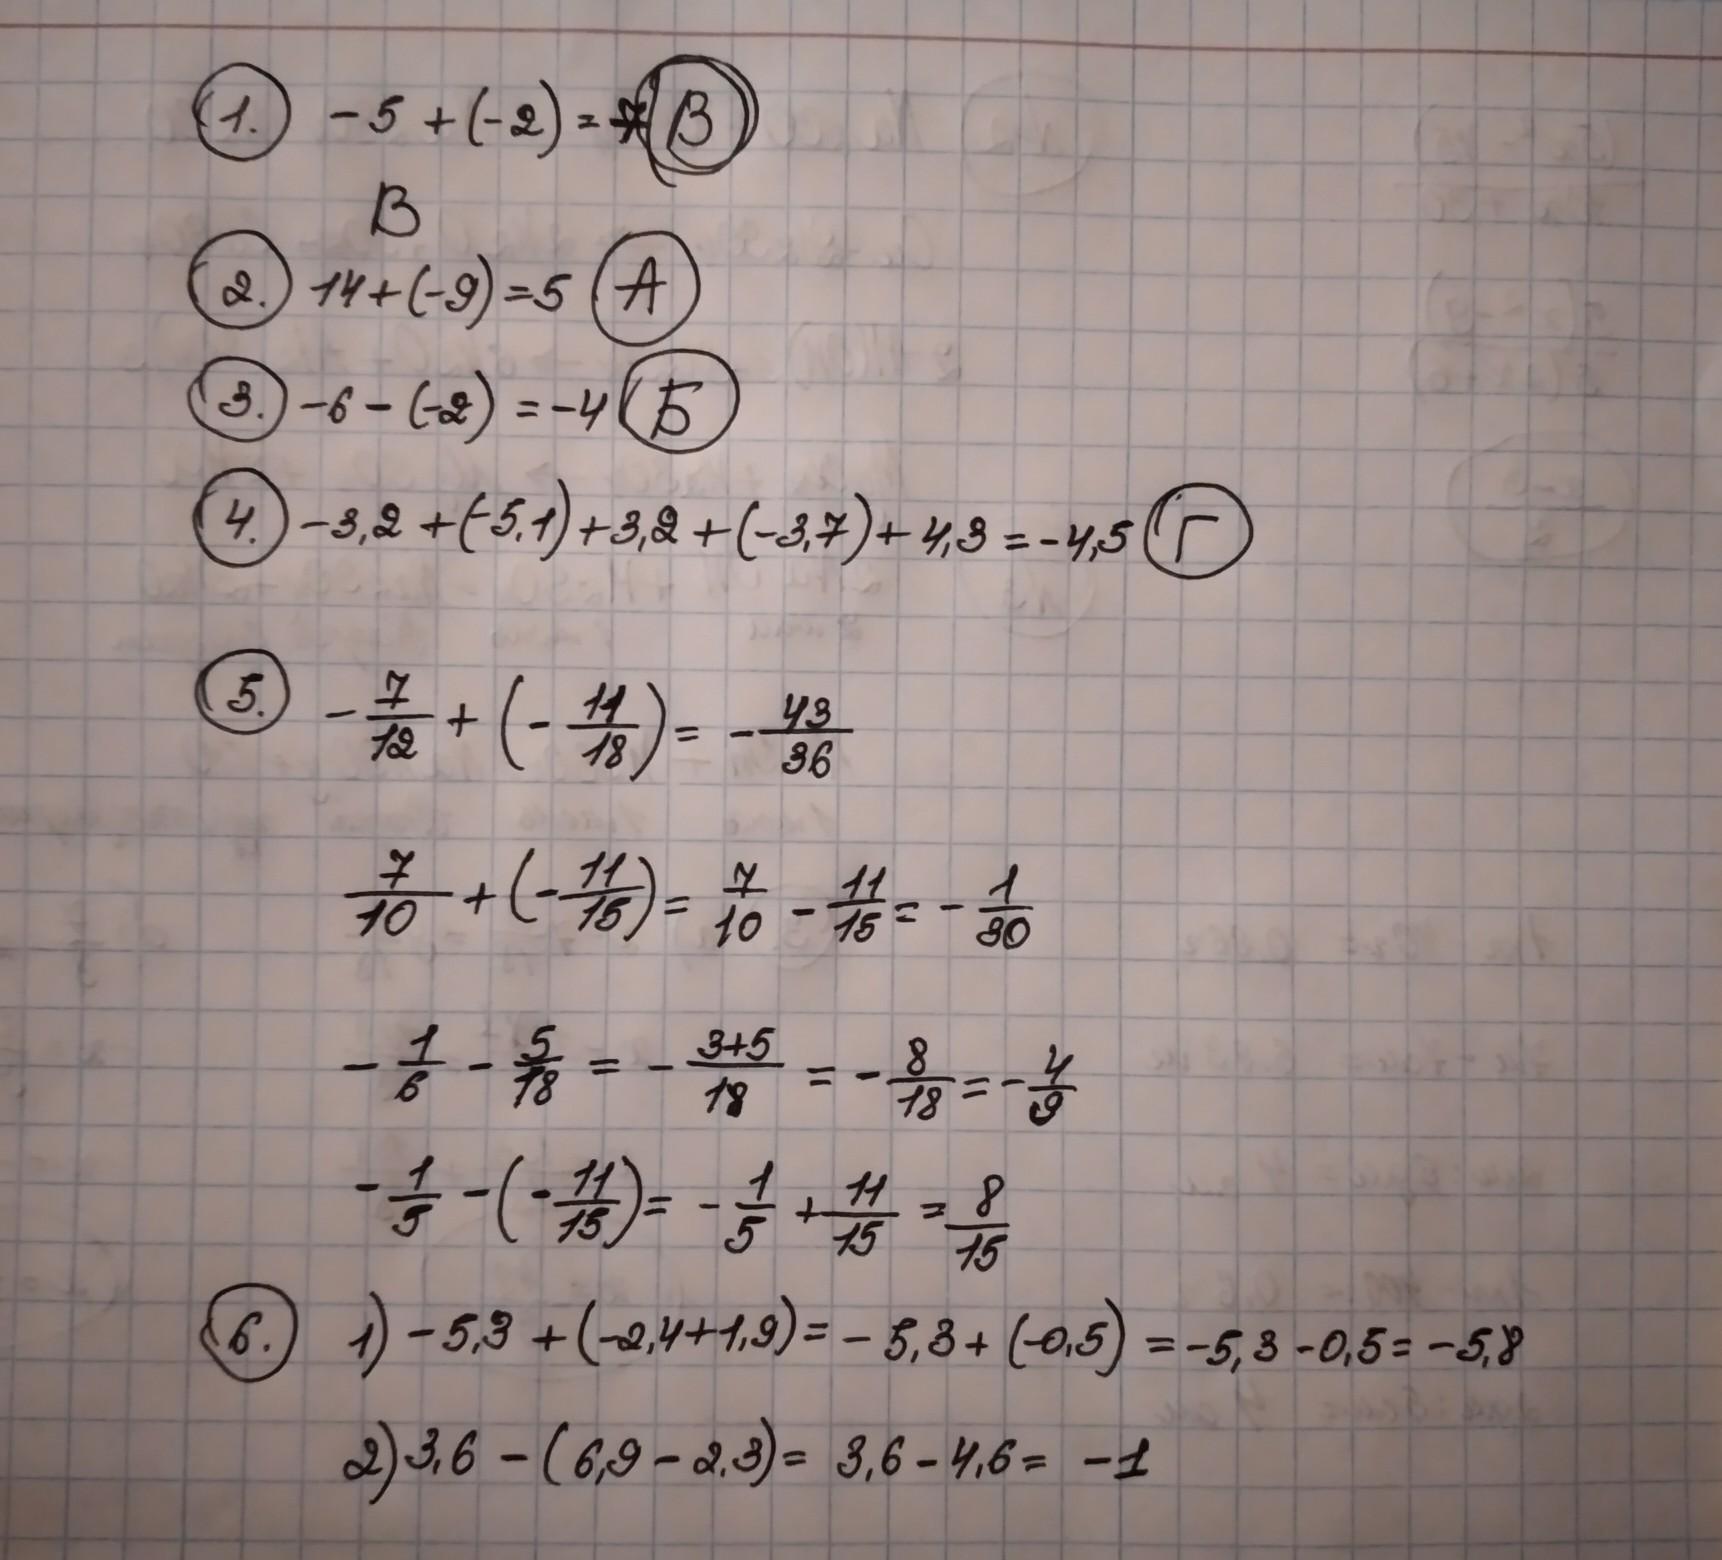 1. -5 + (-2) = -7 В
В
2. 14 + (-9) = 5 А
3. -6 - (-2) = -4 Б
4. -3,2 + (-5,1) + 3,2 + (-3,7) + 4,3 = -4,5 Г
5. -7/12 + (-11/18) = -43/36
7/10 + (-11/15) = 7/10 - 11/15 = -1/30
-1/6 - 5/18 = -(3+5)/18 = -8/18 = -4/9
-1/5 - (-11/15) = -1/5 + 11/15 = 8/15
6. 1) -5,3 + (-2,4+1,9) = -5,3 + (-0,5) = -5,3 - 0,5 = -5,8
2) 3,6 - (6,9 - 2,3) = 3,6 - 4,6 = -1